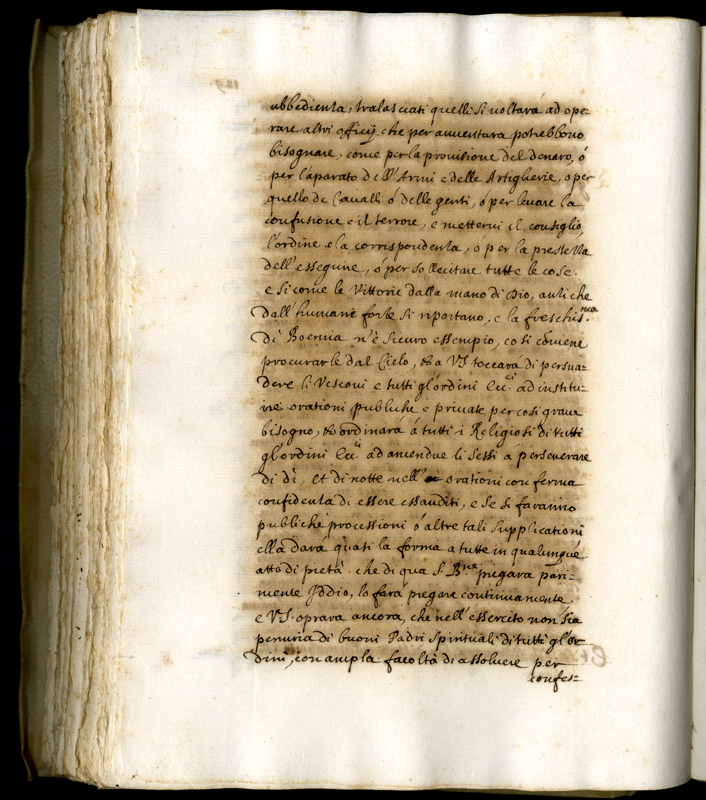 ubbedienza, tralasciati quelli si voltarà ad ope=
rare altri officij che per auuentura potrebbono
bisognare, come per la prouisione del denaro, ò
per l'aparato dell'Armi e delle Artiglierie, o per
quello de Caualli ó delle genti, ó per leuare la
confusione e il terrore, e metterui il consiglio,
l'ordine e la corrispondenza, o per la prestezza
dell'esseguire, ó per sollecitare tutte le cose.
e si come le Vittorie dalla mano di Dio, anzi che
dall'humane forze si riportano, e la freschis.ma
di Boemia n'è sicuro essempio, cosi conuiene
procurarle dal Cielo, & a VS toccará di persua=
dere li Vescoui e tutti gl'ordini Ecc.ci ad institu=
ire orationi publiche e priuate per cosi graue
bisogno, & ordinara á tutti i Religiosi di tutti
gl'ordini Ecc.ci ad amendue li sessi á perseuerare
di dì, et di notte nell' orationi con ferma
confidenza di essere essauditi, e se si faranno
publiche processioni ó altre tali supplicationi
ella dará quasi la forma a tutte in qualunque
atto di pietà. che di qua S. B.ne pregara pari=
mente Iddio, lo fará pregare continuamente
e VS. oprara ancora, che nell'essercito non sia
penuria di buoni Padri spirituali di tutti gl'or
dini, con ampla facoltà di assoluere per
confes=